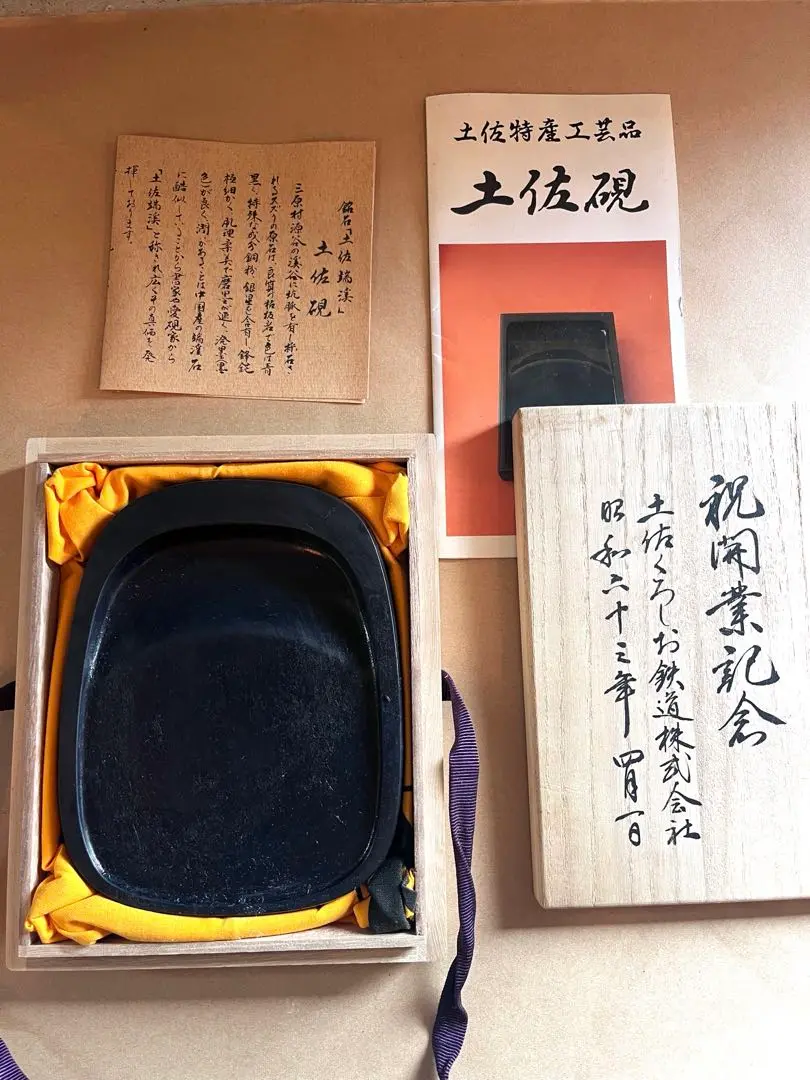 土佐特産工芸品
土佐硯
銘石「土佐端溪」
土佐硯
三原村源谷の溪谷に坑脈を有し称石さ
れるスズリの原石は、良質の粘板岩で色は青
黒く、特殊な成分銅粉、銀星を含有し鋒鋩
極細かく、肌理柔美で磨墨が速く、溌墨(墨
色)が良く、潤いがあることは中国産の端溪石
に酷似していることから書家や愛硯家から
「土佐端溪」と称され広くその真価を発
揮しております。
祝開業記念
土佐くろしお鉄道株式会社
昭和六十三年四月一日